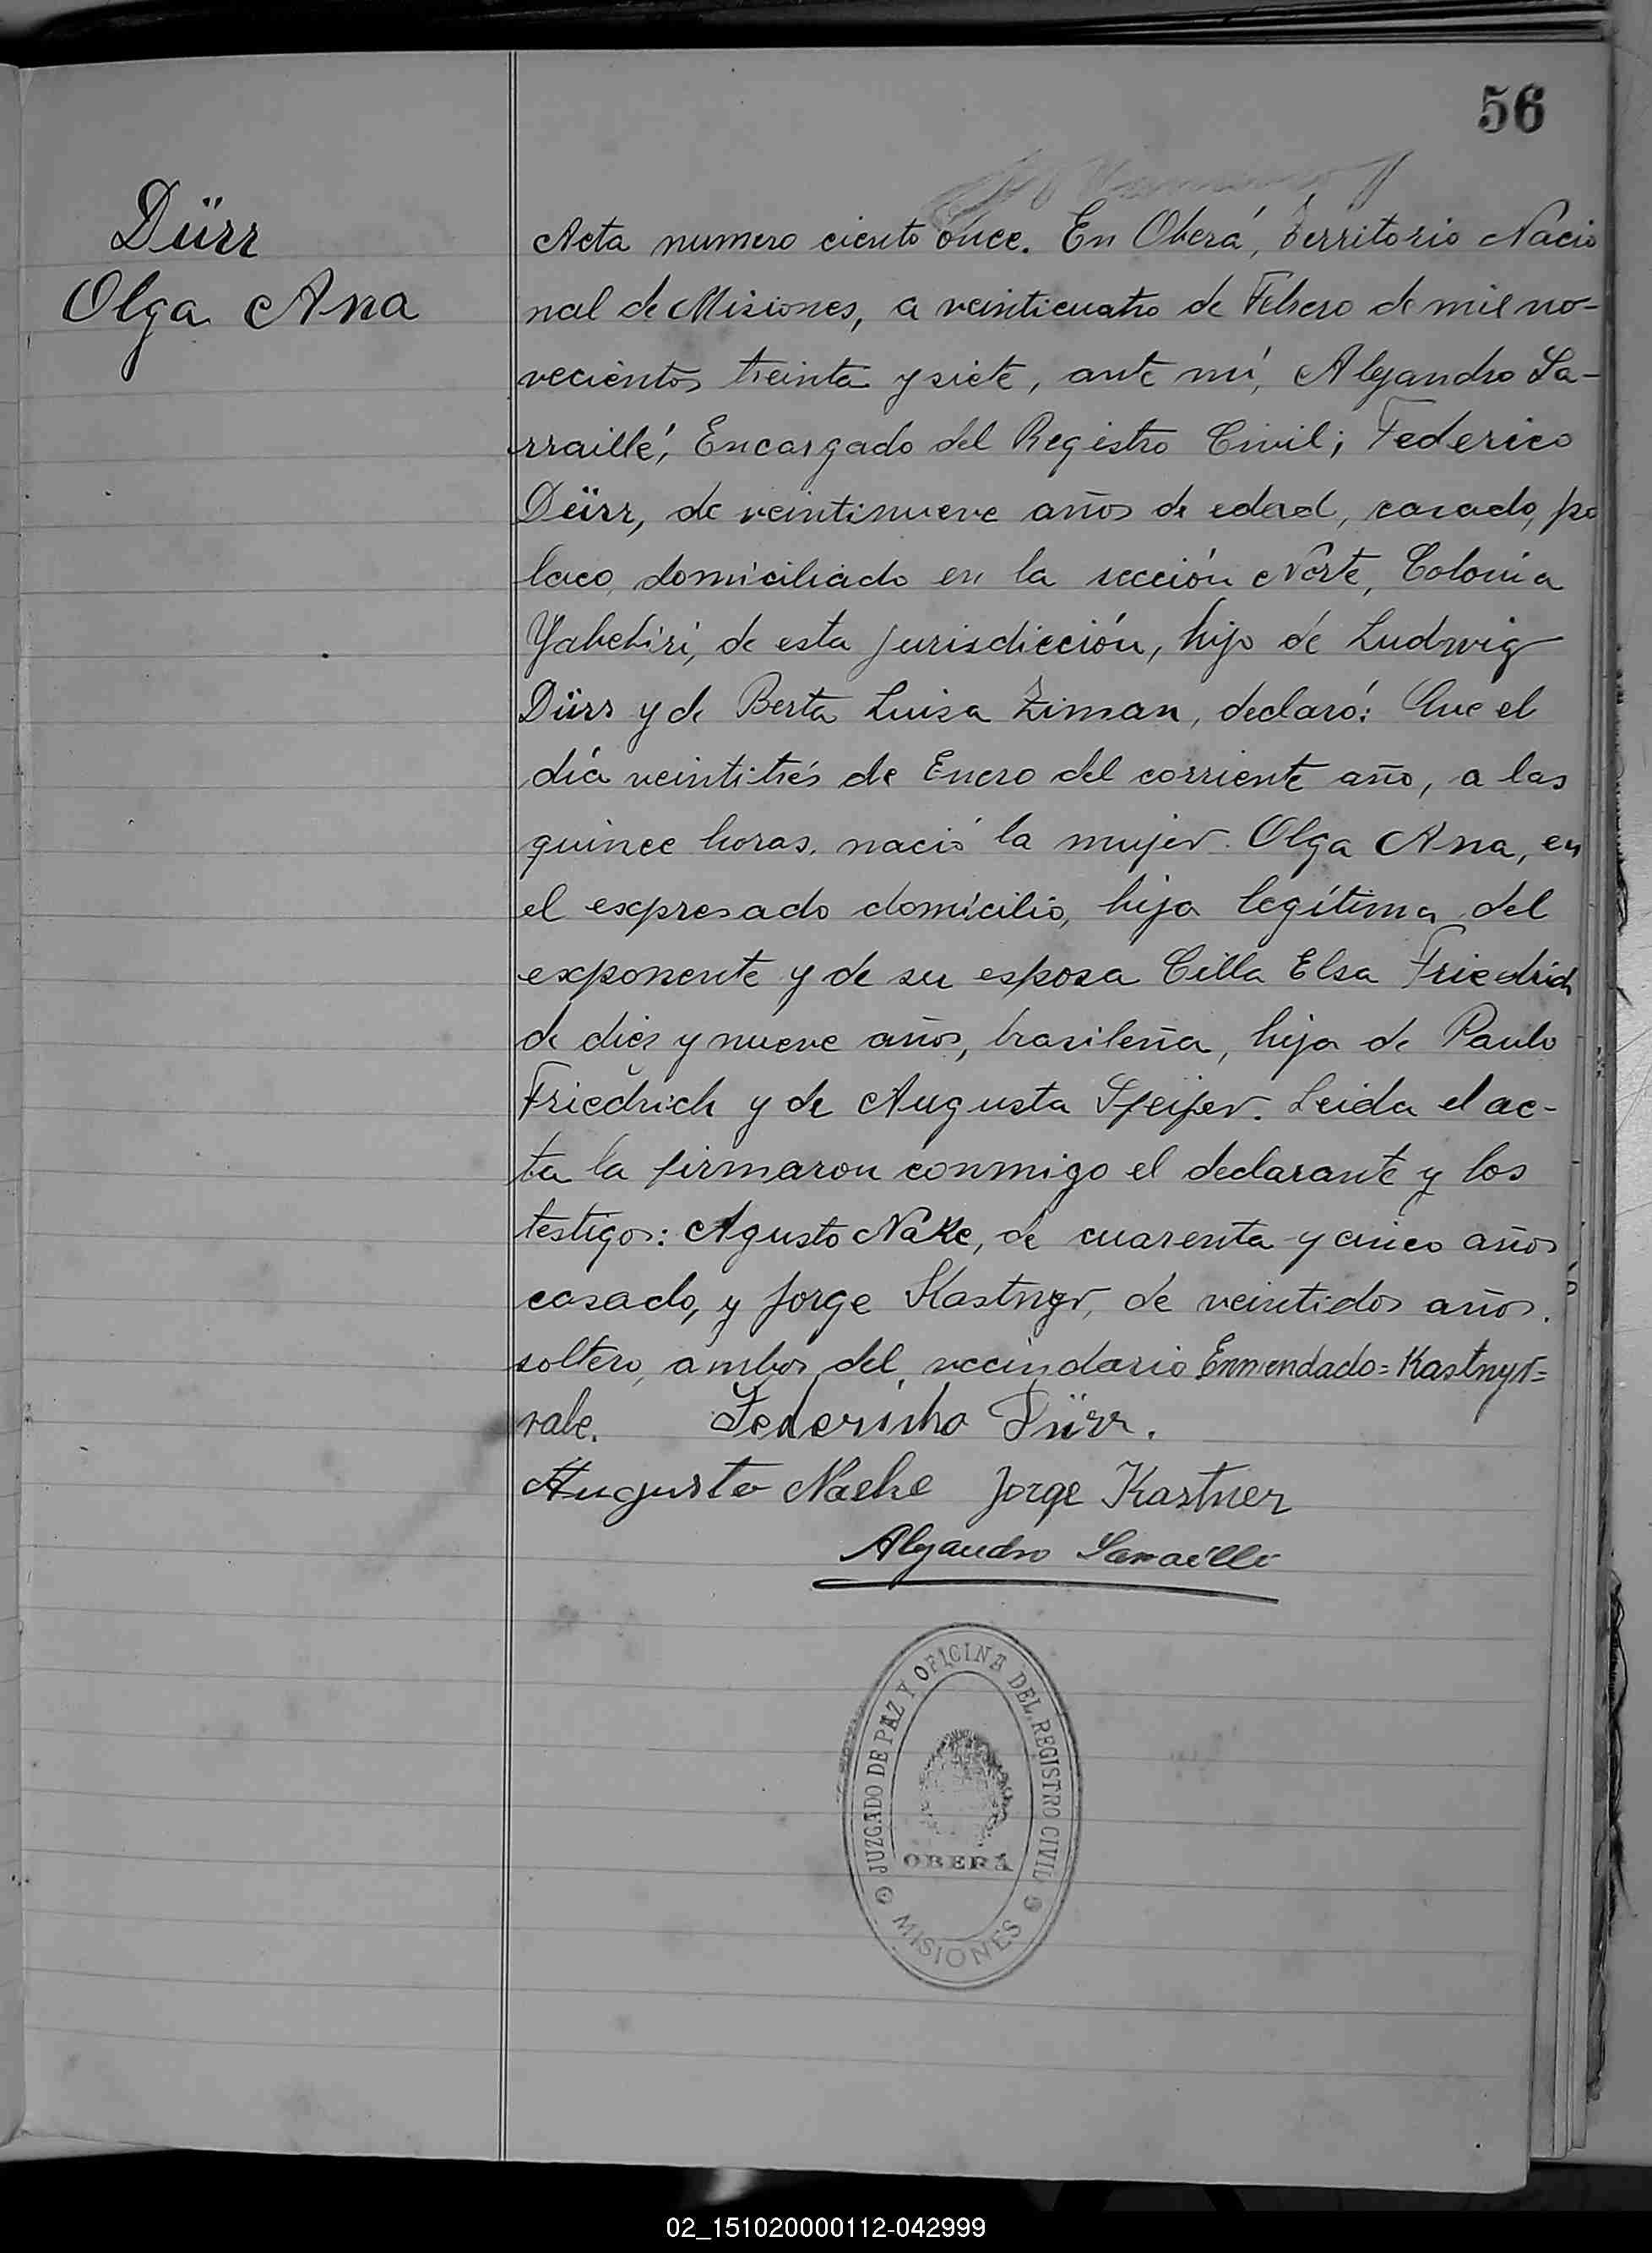 56
Dürr
Olga Ana
Acta numero ciento once. En Oberá, Territorio Nacio
nal de Misiones, a veinticuatro de Febrero de mil no-
vecientos treinta y siete, ante mí, Alejandro La-
rraillé, Encargado del Registro Civil; Federico
Dürr, de veintinueve años de edad, casado, po
laco, domiciliado en la sección Norte, Colonia
Yabebirí, de esta jurisdicción, hijo de Ludwig
Dürr y de Berta Luisa Ziman, declaró: Que el
día veintitrés de Enero del corriente año, a las
quince horas, nació la mujer Olga Ana, en
el expresado domicilio, hija legítima del
exponente y de su esposa Cilla Elsa Friedrich
de diez y nueve años, brasileña, hija de Paulo
Friedrich y de Augusta Speifer. Leida el ac-
ta la firmaron conmigo el declarante y los
testigos: Agusto Nake, de cuarenta y cinco años
casado, y Jorge Kastnyr, de veintidos años.
soltero, ambos del vecindario Enmendado=Kastnyr=
vale. Federicho Dürr.
Augusto Naehe Jorge Kastner
Alejandro Larraillé
JUZGADO DE PAZ Y OFICINA DEL REGISTRO CIVIL
OBERÁ
MISIONES
02_151020000112-042999